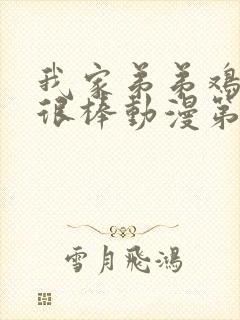 我家弟弟鸡
很棒動漫第
雪月飛鴻